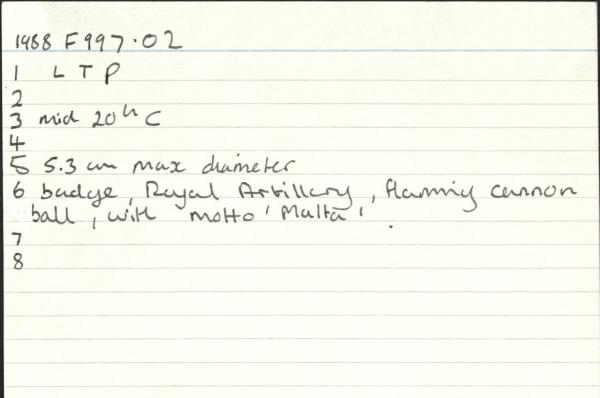 1988 F997.02
1 L T P
2
3 mid 20th C
4
5 5.3 cm max diameter
6 badge, Royal Artillery, flaming cannon
ball, with motto 'Malta'.
7
8